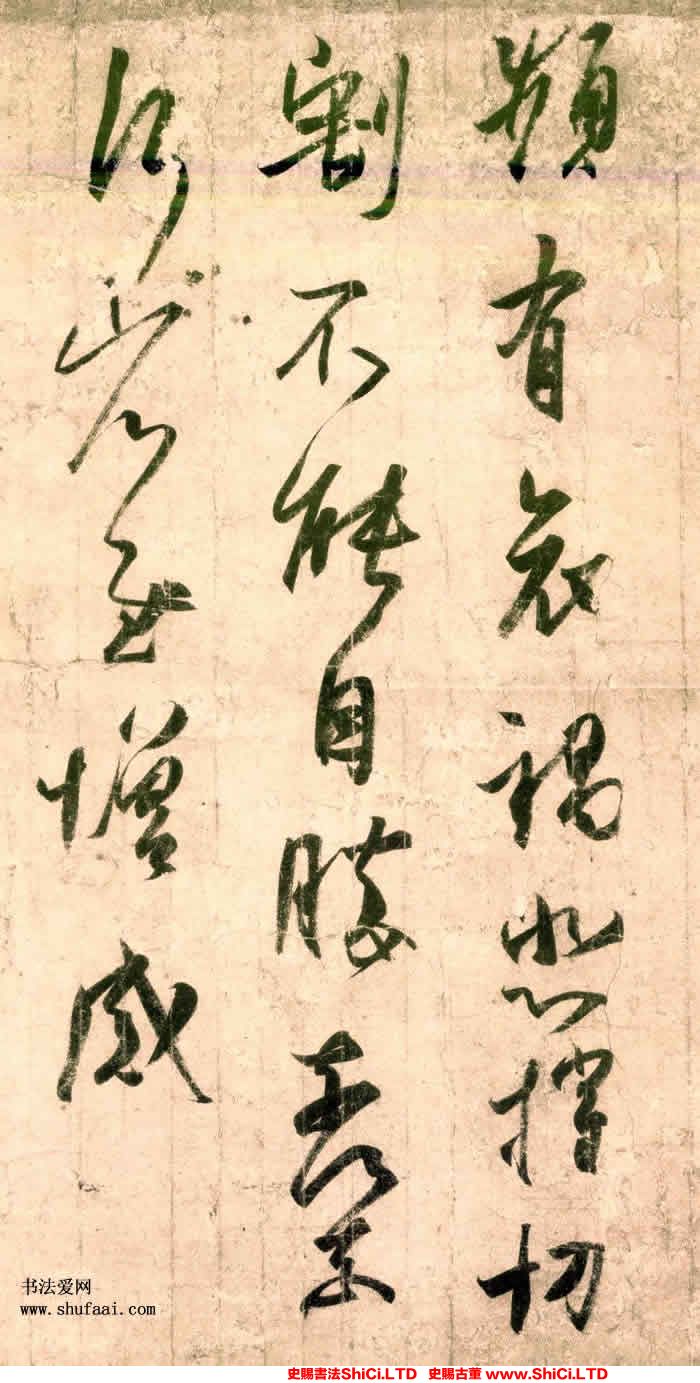 頻有哀禍悲摧切
割不能自勝奈何
奈何省慰增感
书法爱网
www.shufaai.com
史賜書法ShiCi.LTD 史賜古董 www.ShiCi.LTD